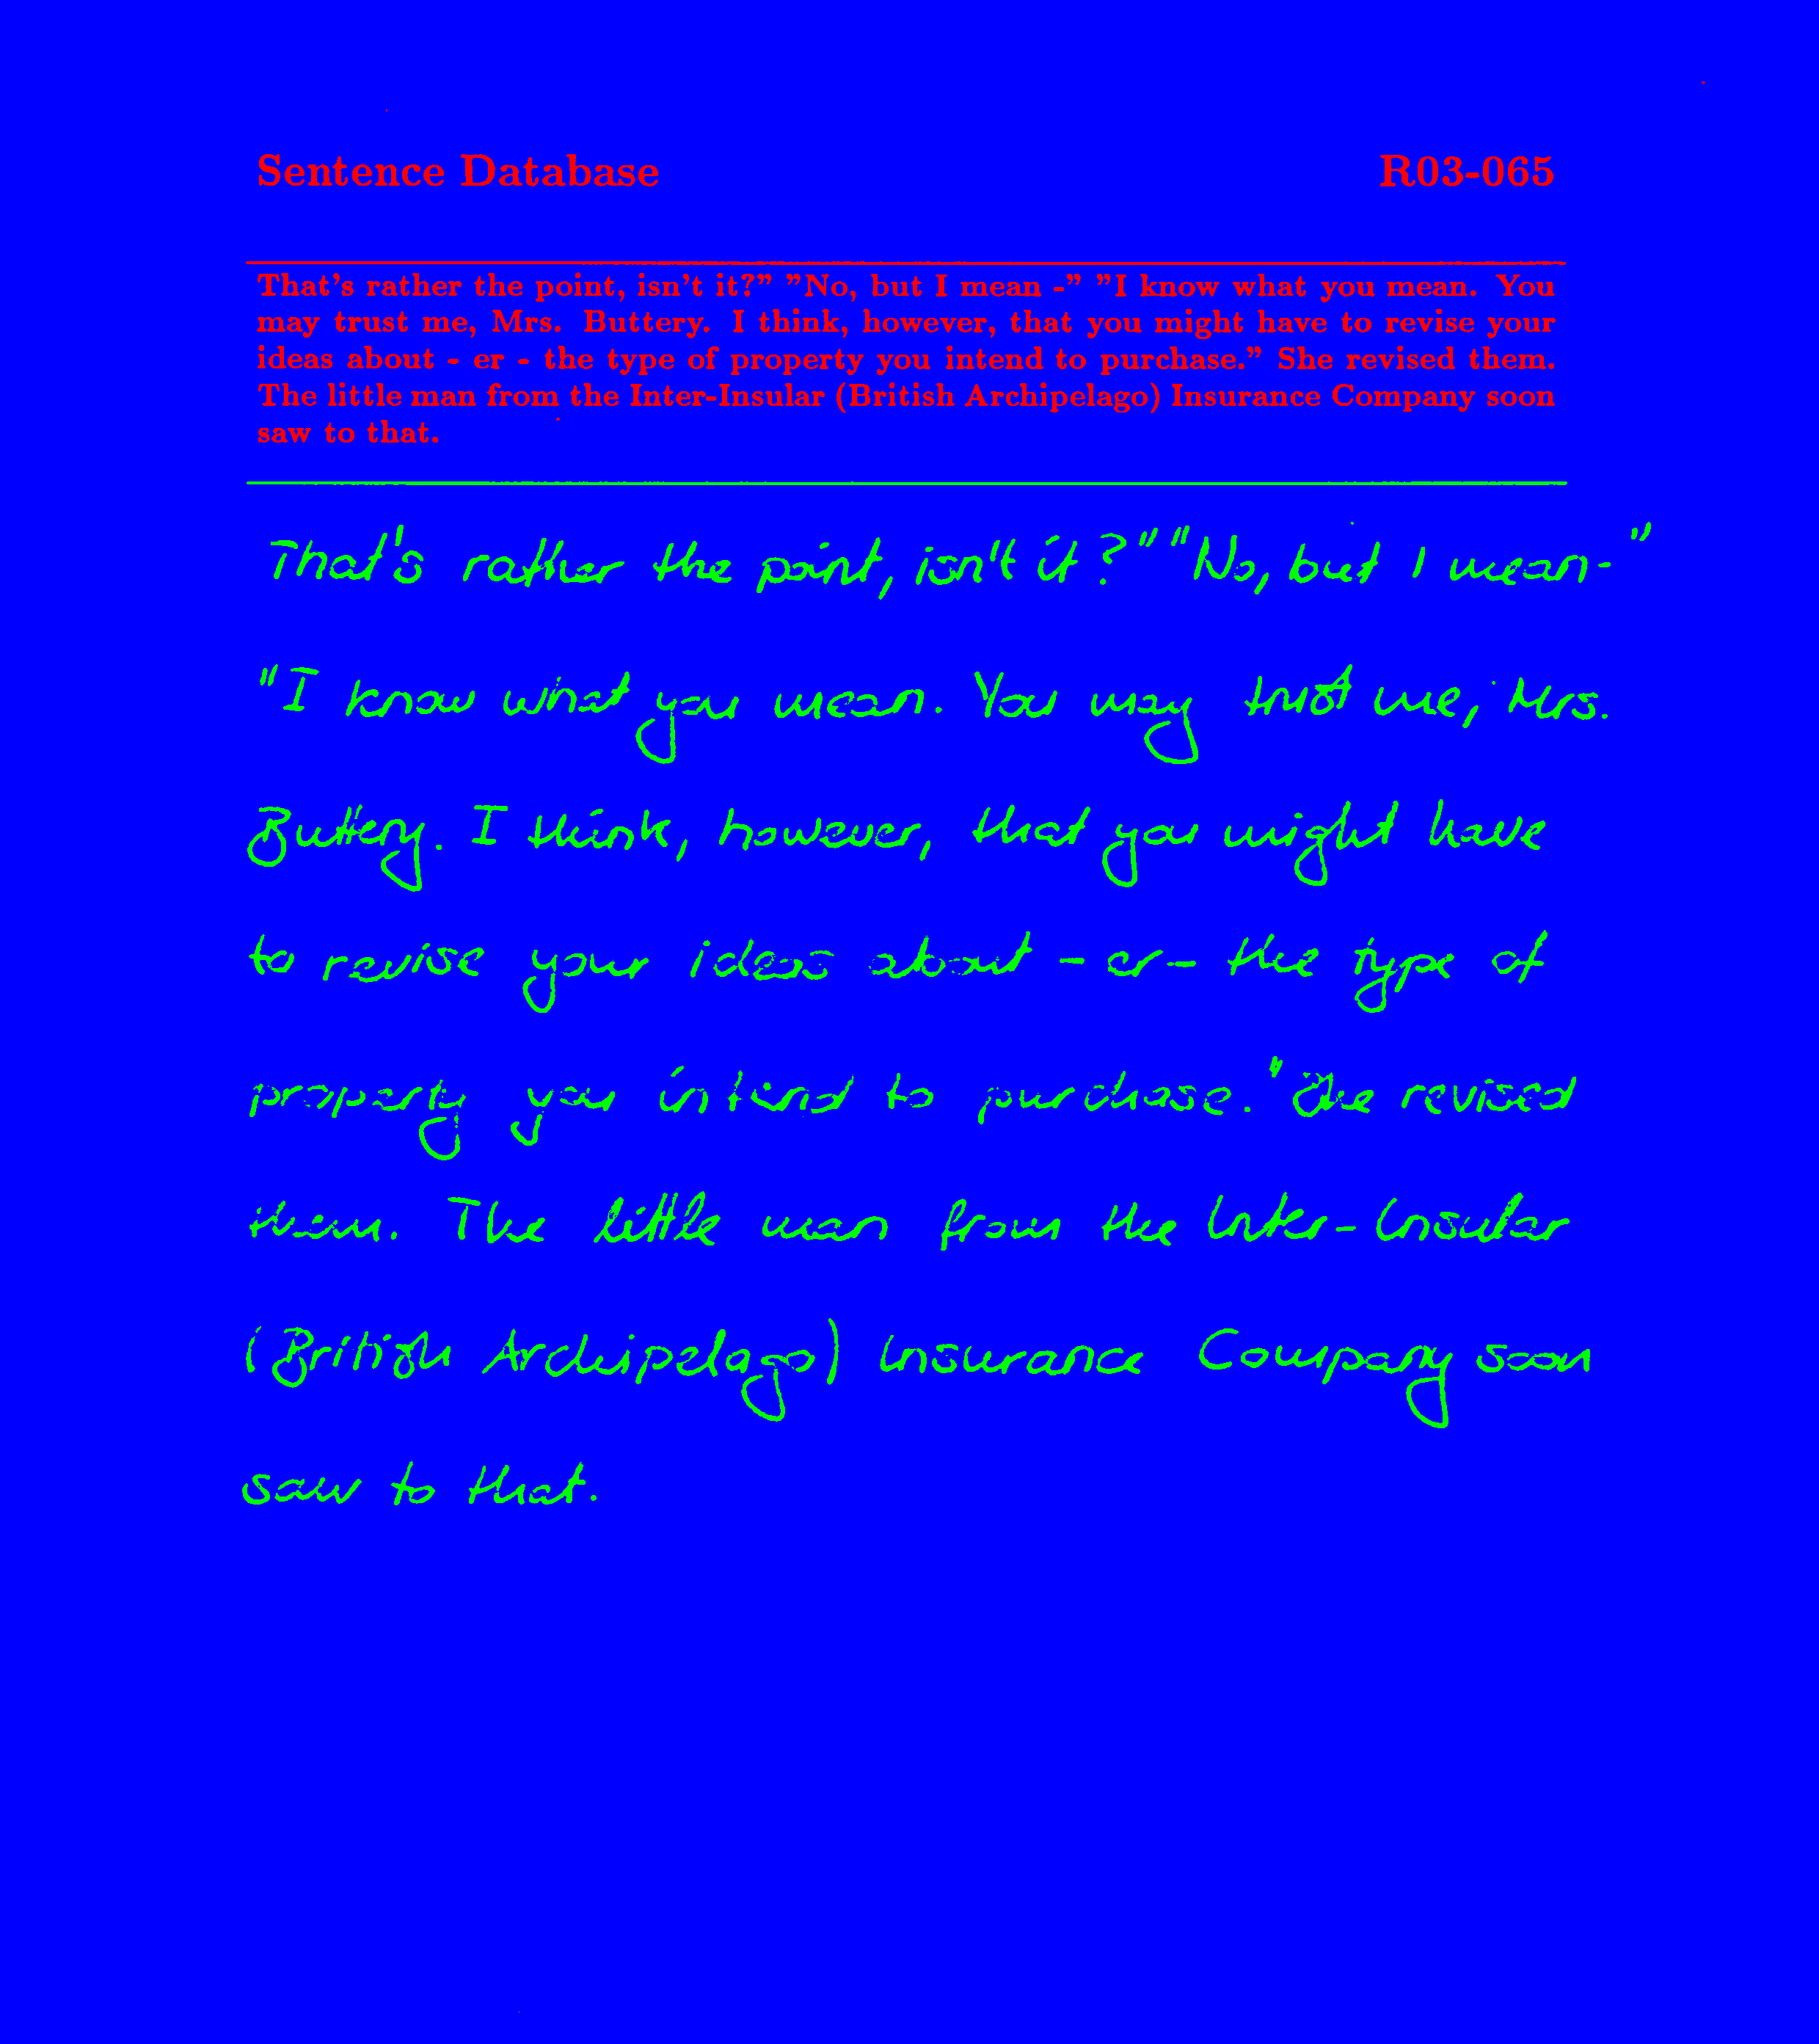 Sentence Database R03-065
That's rather the point, isn't it?" "No, but I mean -" "I know what you mean. You
may trust me, Mrs. Buttery. I think, however, that you might have to revise your
ideas about - er - the type of property you intend to purchase." She revised them.
The little man from the Inter-Insular (British Archipelago) Insurance Company soon
saw to that.
That's rather the point, isn't it?" "No, but I mean-"
"I know what you mean. You may trust me, Mrs.
Buttery. I think, however, that you might have
to revise your ideas about - er - the type of
property you intend to purchase." She revised
them. The little man from the Inter-Insular
(British Archipelago) Insurance Company soon
saw to that.